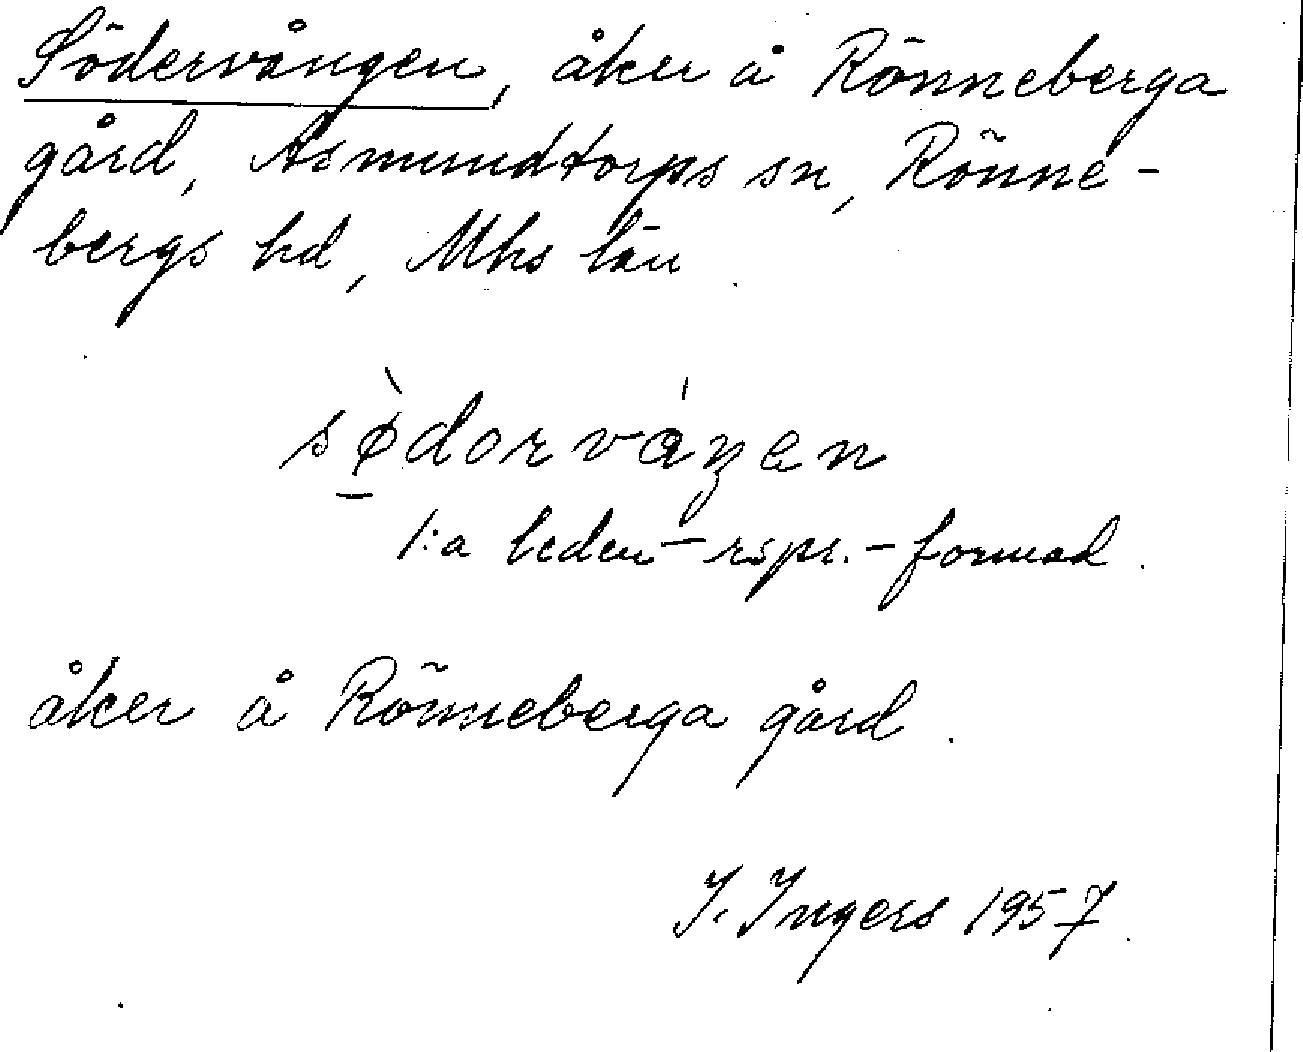 Södervången, åker å Rönneberga
gård, Asmundtorps sn, Rönne-
bergs hd, Mhs län
sø̀dorváŋen
1:a leden rspr.-formad.
åker å Rönneberga gård.
I. Ingers 1957.